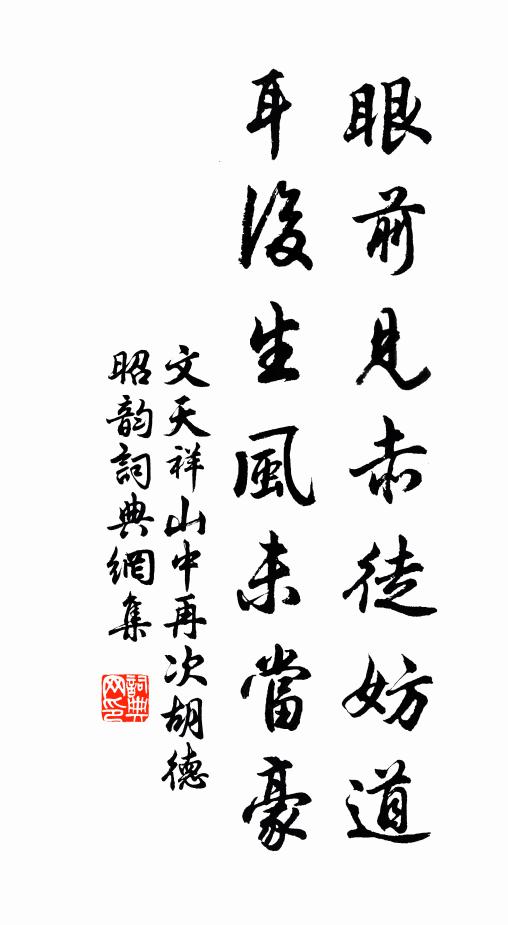 眼前見赤徒妨道
耳後生風未當豪
文天祥山中再次胡德
昭韵詞典網集
詞典網印